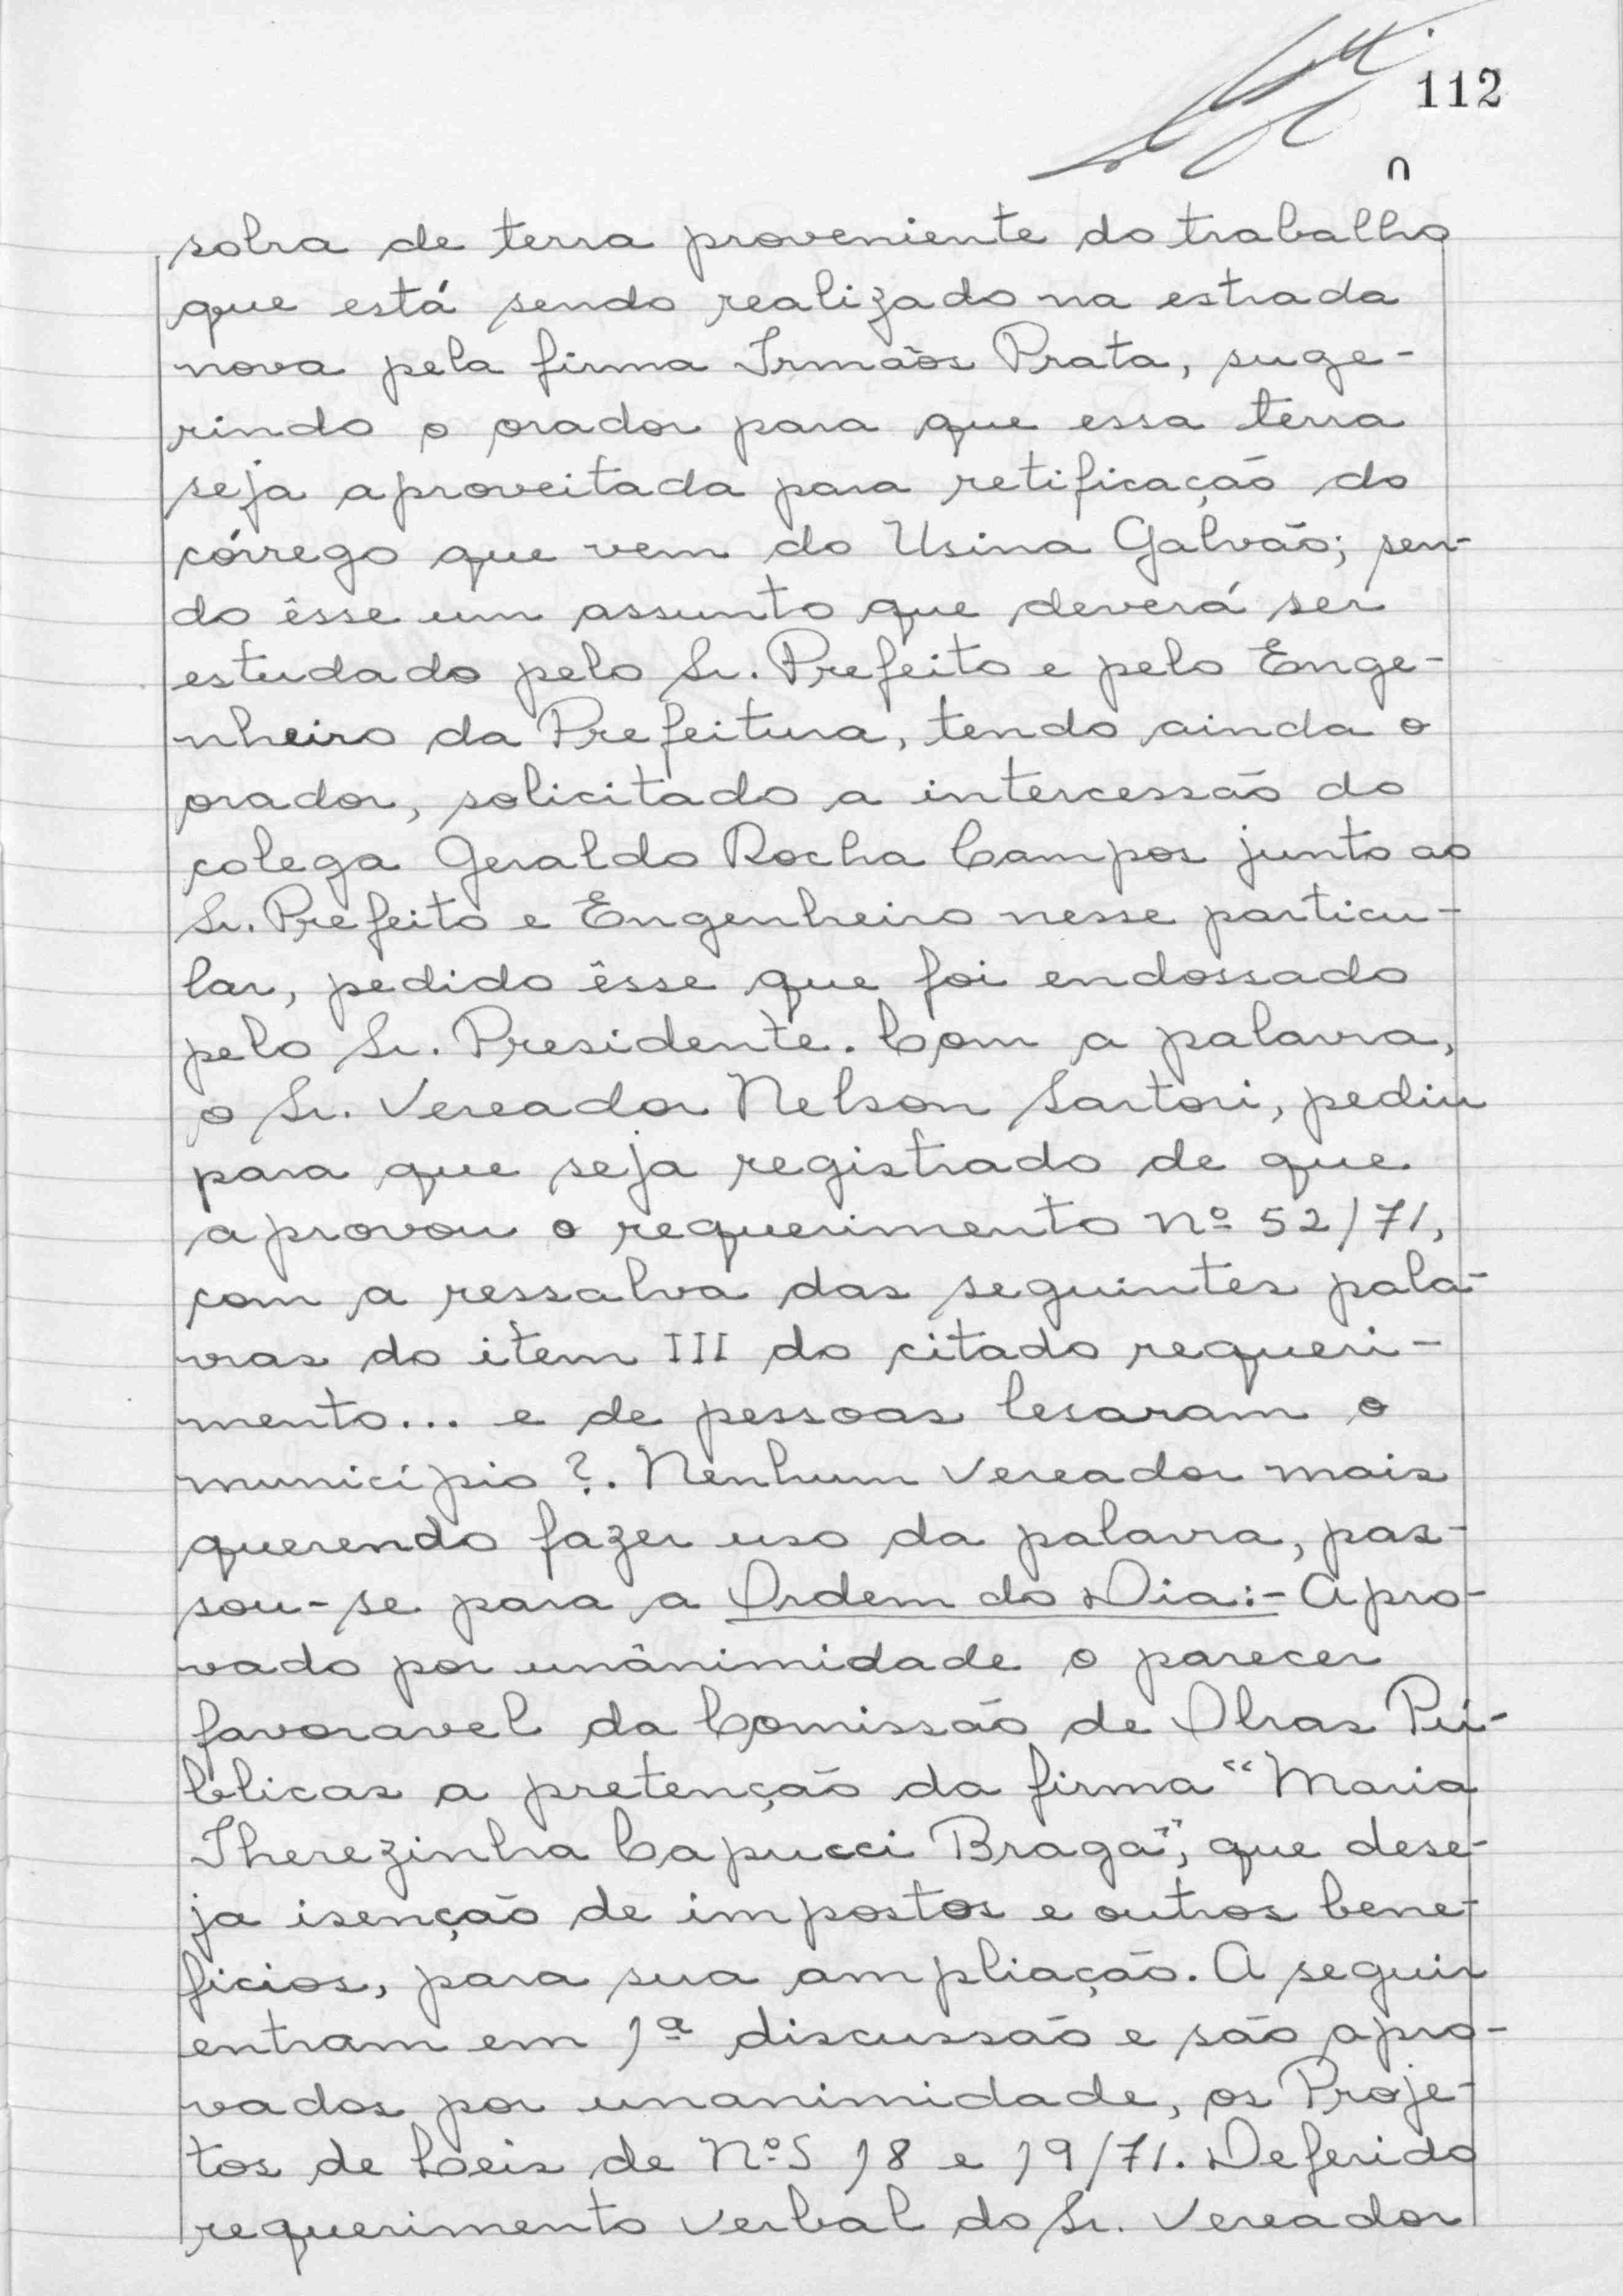 112
sobra de terra proveniente do trabalho
que está sendo realizado na estrada
nova pela firma Irmãos Prata, suge-
rindo o orador para que essa terra
seja aproveitada para retificação do
córrego que vem do Usina Galvão; sen-
do êsse um assunto que deverá ser
estudado pelo Sr. Prefeito e pelo Enge-
nheiro da Prefeitura, tendo ainda o
orador, solicitado a intercessão do
colega Geraldo Rocha Campos junto ao
Sr. Prefeito e Engenheiro nesse particu-
lar, pedido êsse que foi endossado
pelo Sr. Presidente. Com a palavra,
o Sr. Vereador Nelson Sartori, pediu
para que seja registrado de que
aprovou o requerimento nº 52/71,
com a ressalva das seguintes pala-
vras do item III do citado requeri-
mento... e de pessoas lesaram o
município?. Nenhum Vereador mais
querendo fazer uso da palavra, pas-
sou-se para a Ordem do Dia:- Apro-
vado por unânimidade o parecer
favoravel da Comissão de Obras Pú-
blicas a pretenção da firma "Maria
Therezinha Capucci Braga", que dese-
ja isenção de impostos e outros bene-
ficios, para sua ampliação. A seguir
entram em 1ª discussão e são apro-
vados por unanimidade, os Proje-
tos de Leis de Nºs 18 e 19/71. Deferido
requerimento verbal do Sr. Vereador